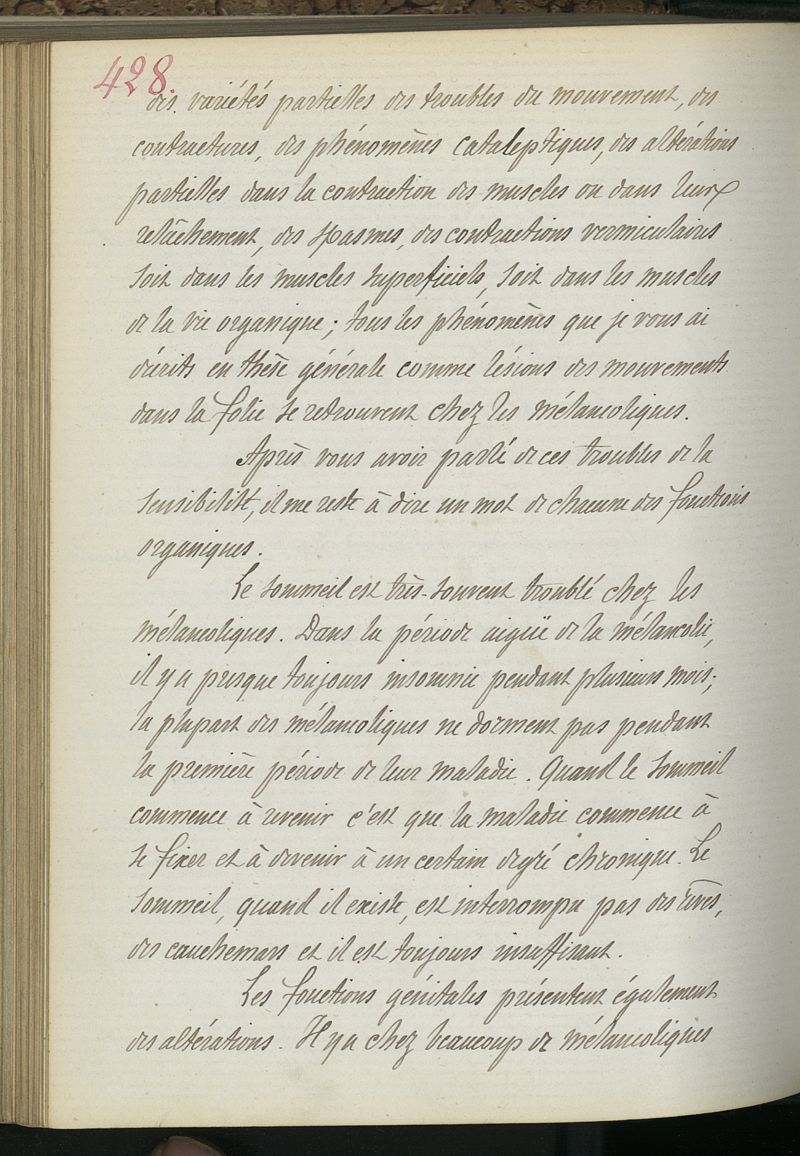 428.
des variétés partielles des troubles du mouvement, des
contractures, des phénomènes cataleptiques, des altérations
partielles dans la contraction des muscles ou dans leur
relâchement, des spasmes, des contractions vermiculaires
soit dans les muscles superficiels, soit dans les muscles
de la vie organique ; tous les phénomènes que je vous ai
décrits en thèse générale comme lésions des mouvements
dans la folie se retrouvent chez les mélancoliques.
Après vous avoir parlé de ces troubles de la
sensibilité, il me reste à dire un mot de chacune des fonctions
organiques.
Le sommeil est très-souvent troublé chez les
mélancoliques. Dans la période aigüe de la mélancolie,
il y a presque toujours insomnie pendant plusieurs mois ;
la plupart des mélancoliques ne dorment pas pendant
la première période de leur maladie. Quand le sommeil
commence à revenir c'est que la maladie commence à
se fixer et à devenir à un certain degré chronique. Le
sommeil, quand il existe, est interrompu par des rêves,
des cauchemars et il est toujours insuffisant.
Les fonctions génitales présentent également
des altérations. Il y a chez beaucoup de mélancoliques